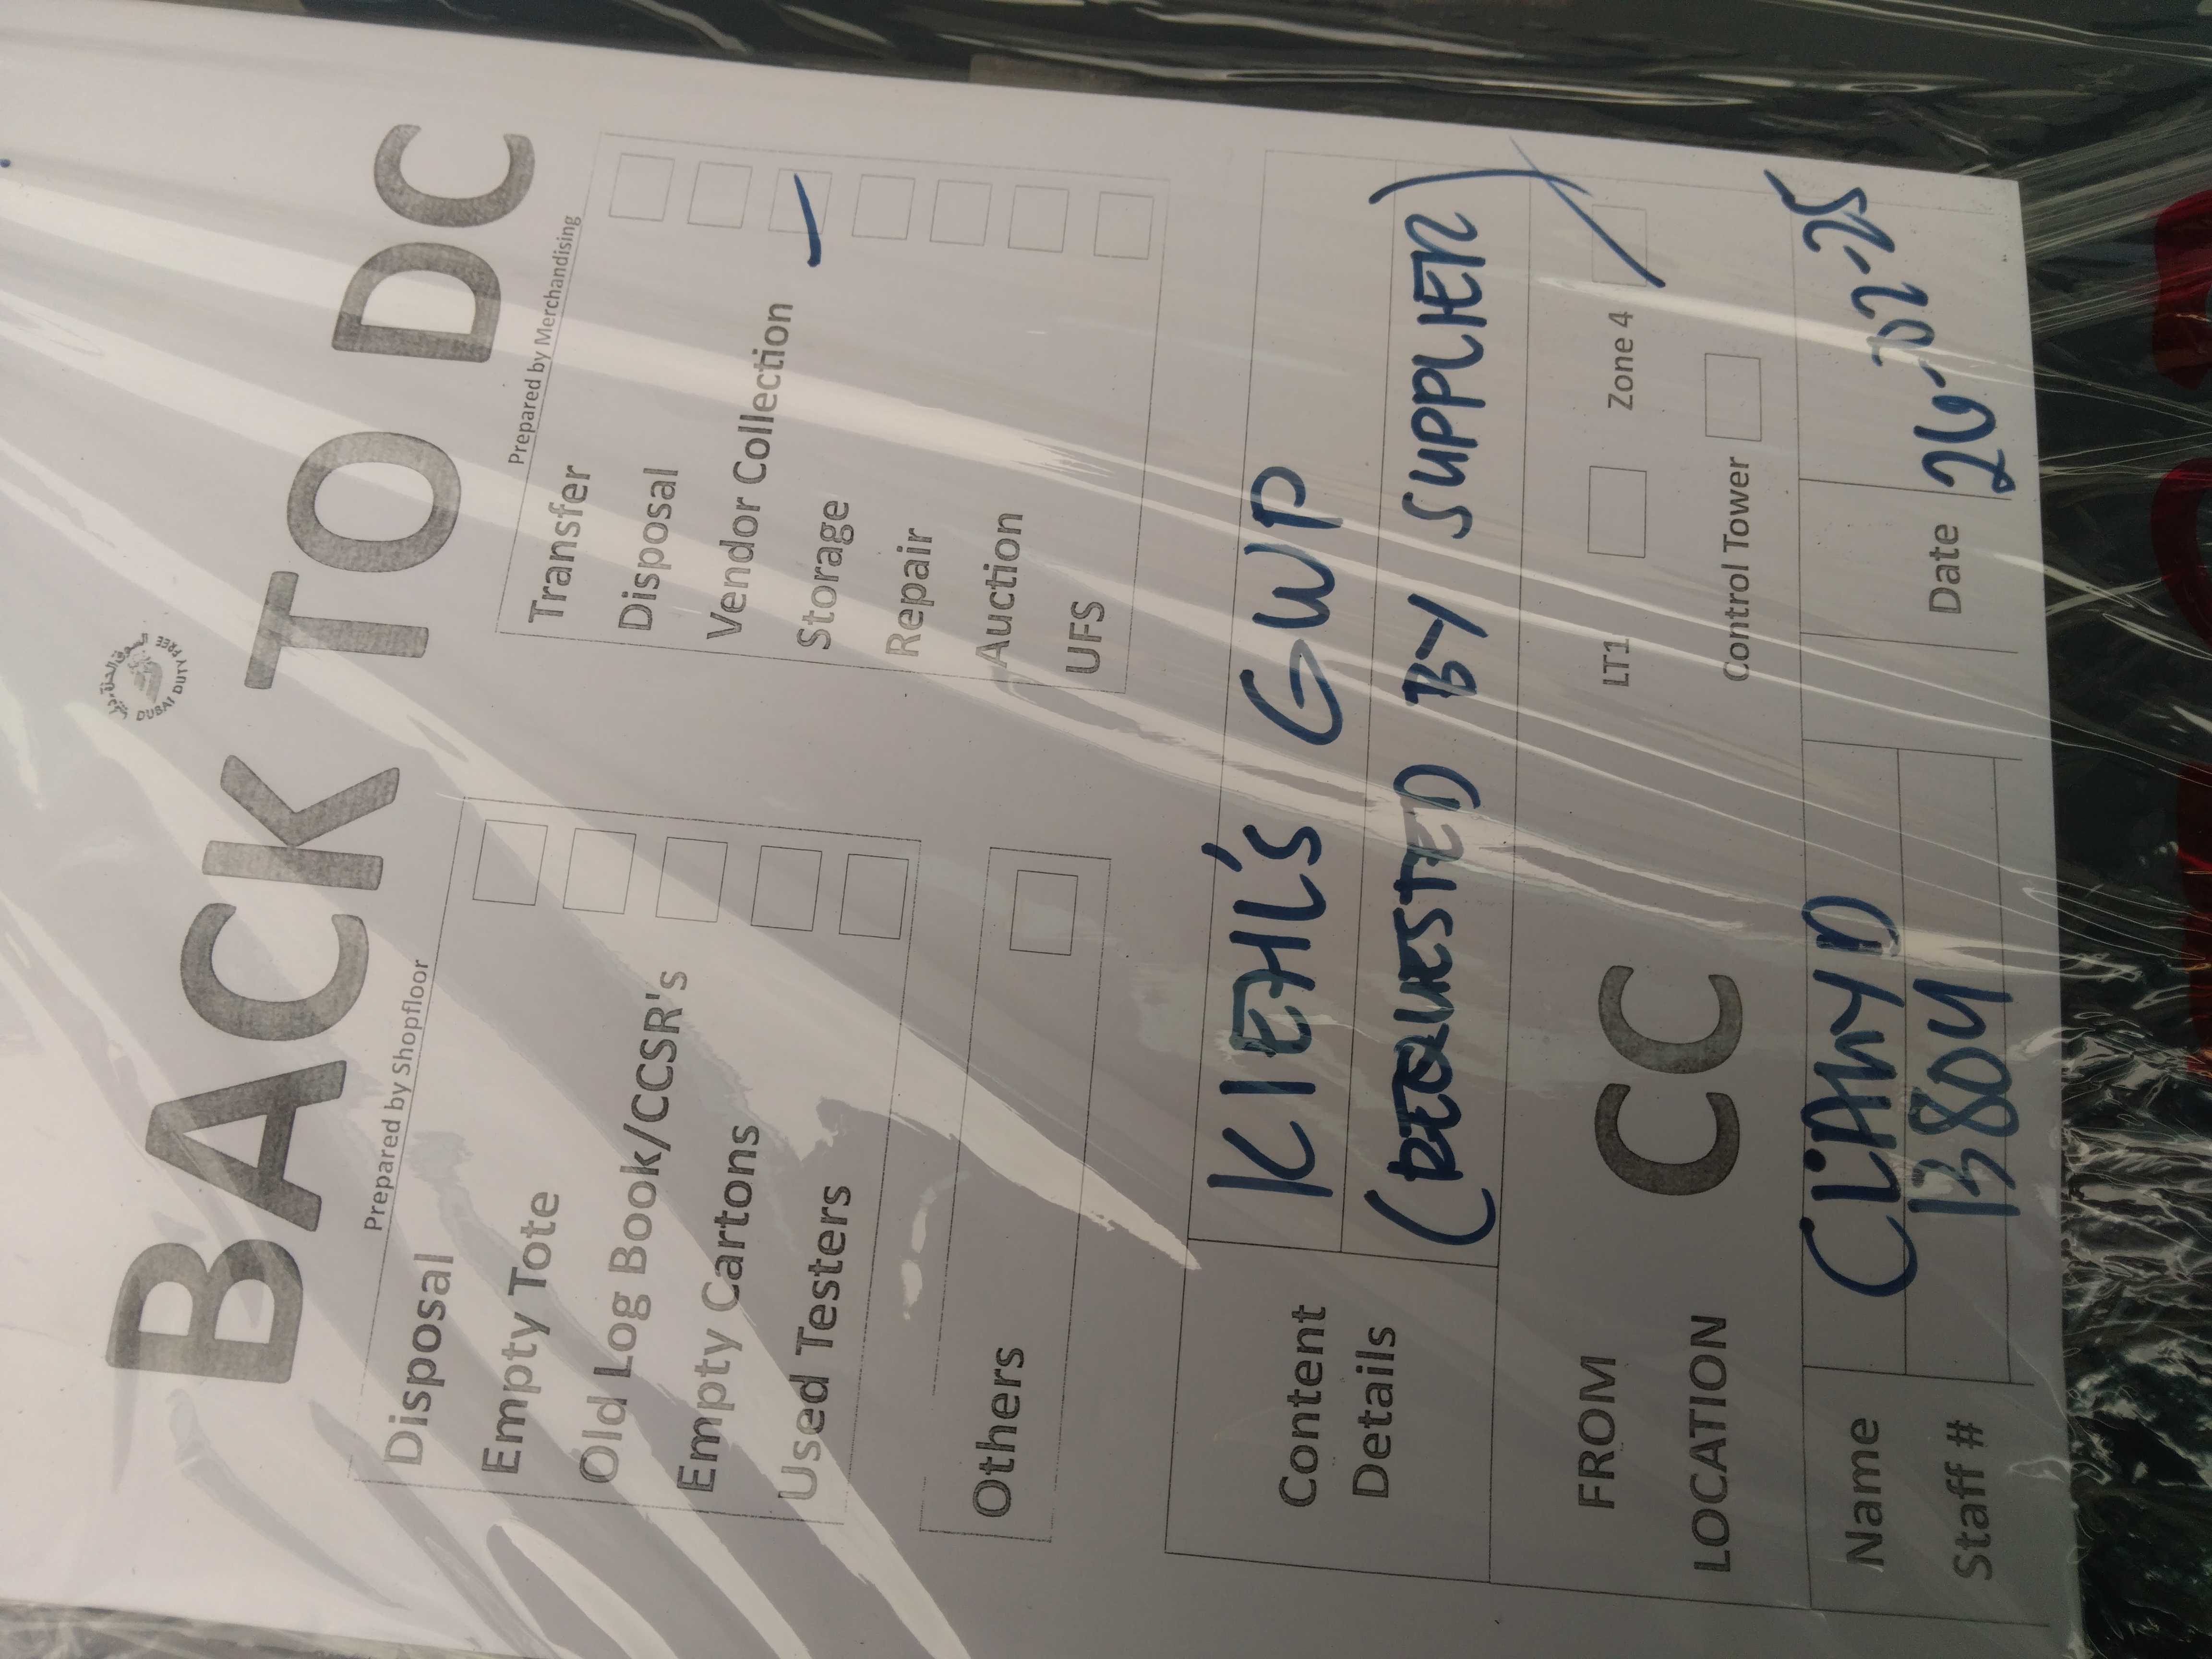 DUBAI DUTY FREE
BACK TO DC
Prepared by Shopfloor
Disposal
Empty Tote
Old Log Book/CCSR's
Empty Cartons
Used Testers
Others
Prepared by Merchandising
Transfer
Disposal
Vendor Collection
Storage
Repair
Auction
UFS
Content Details
KIEHL'S GWP
(REQUESTED BY SUPPLIER)
FROM LOCATION
CC
LT1
Zone 4
Control Tower
Name
Staff #
13804
Date